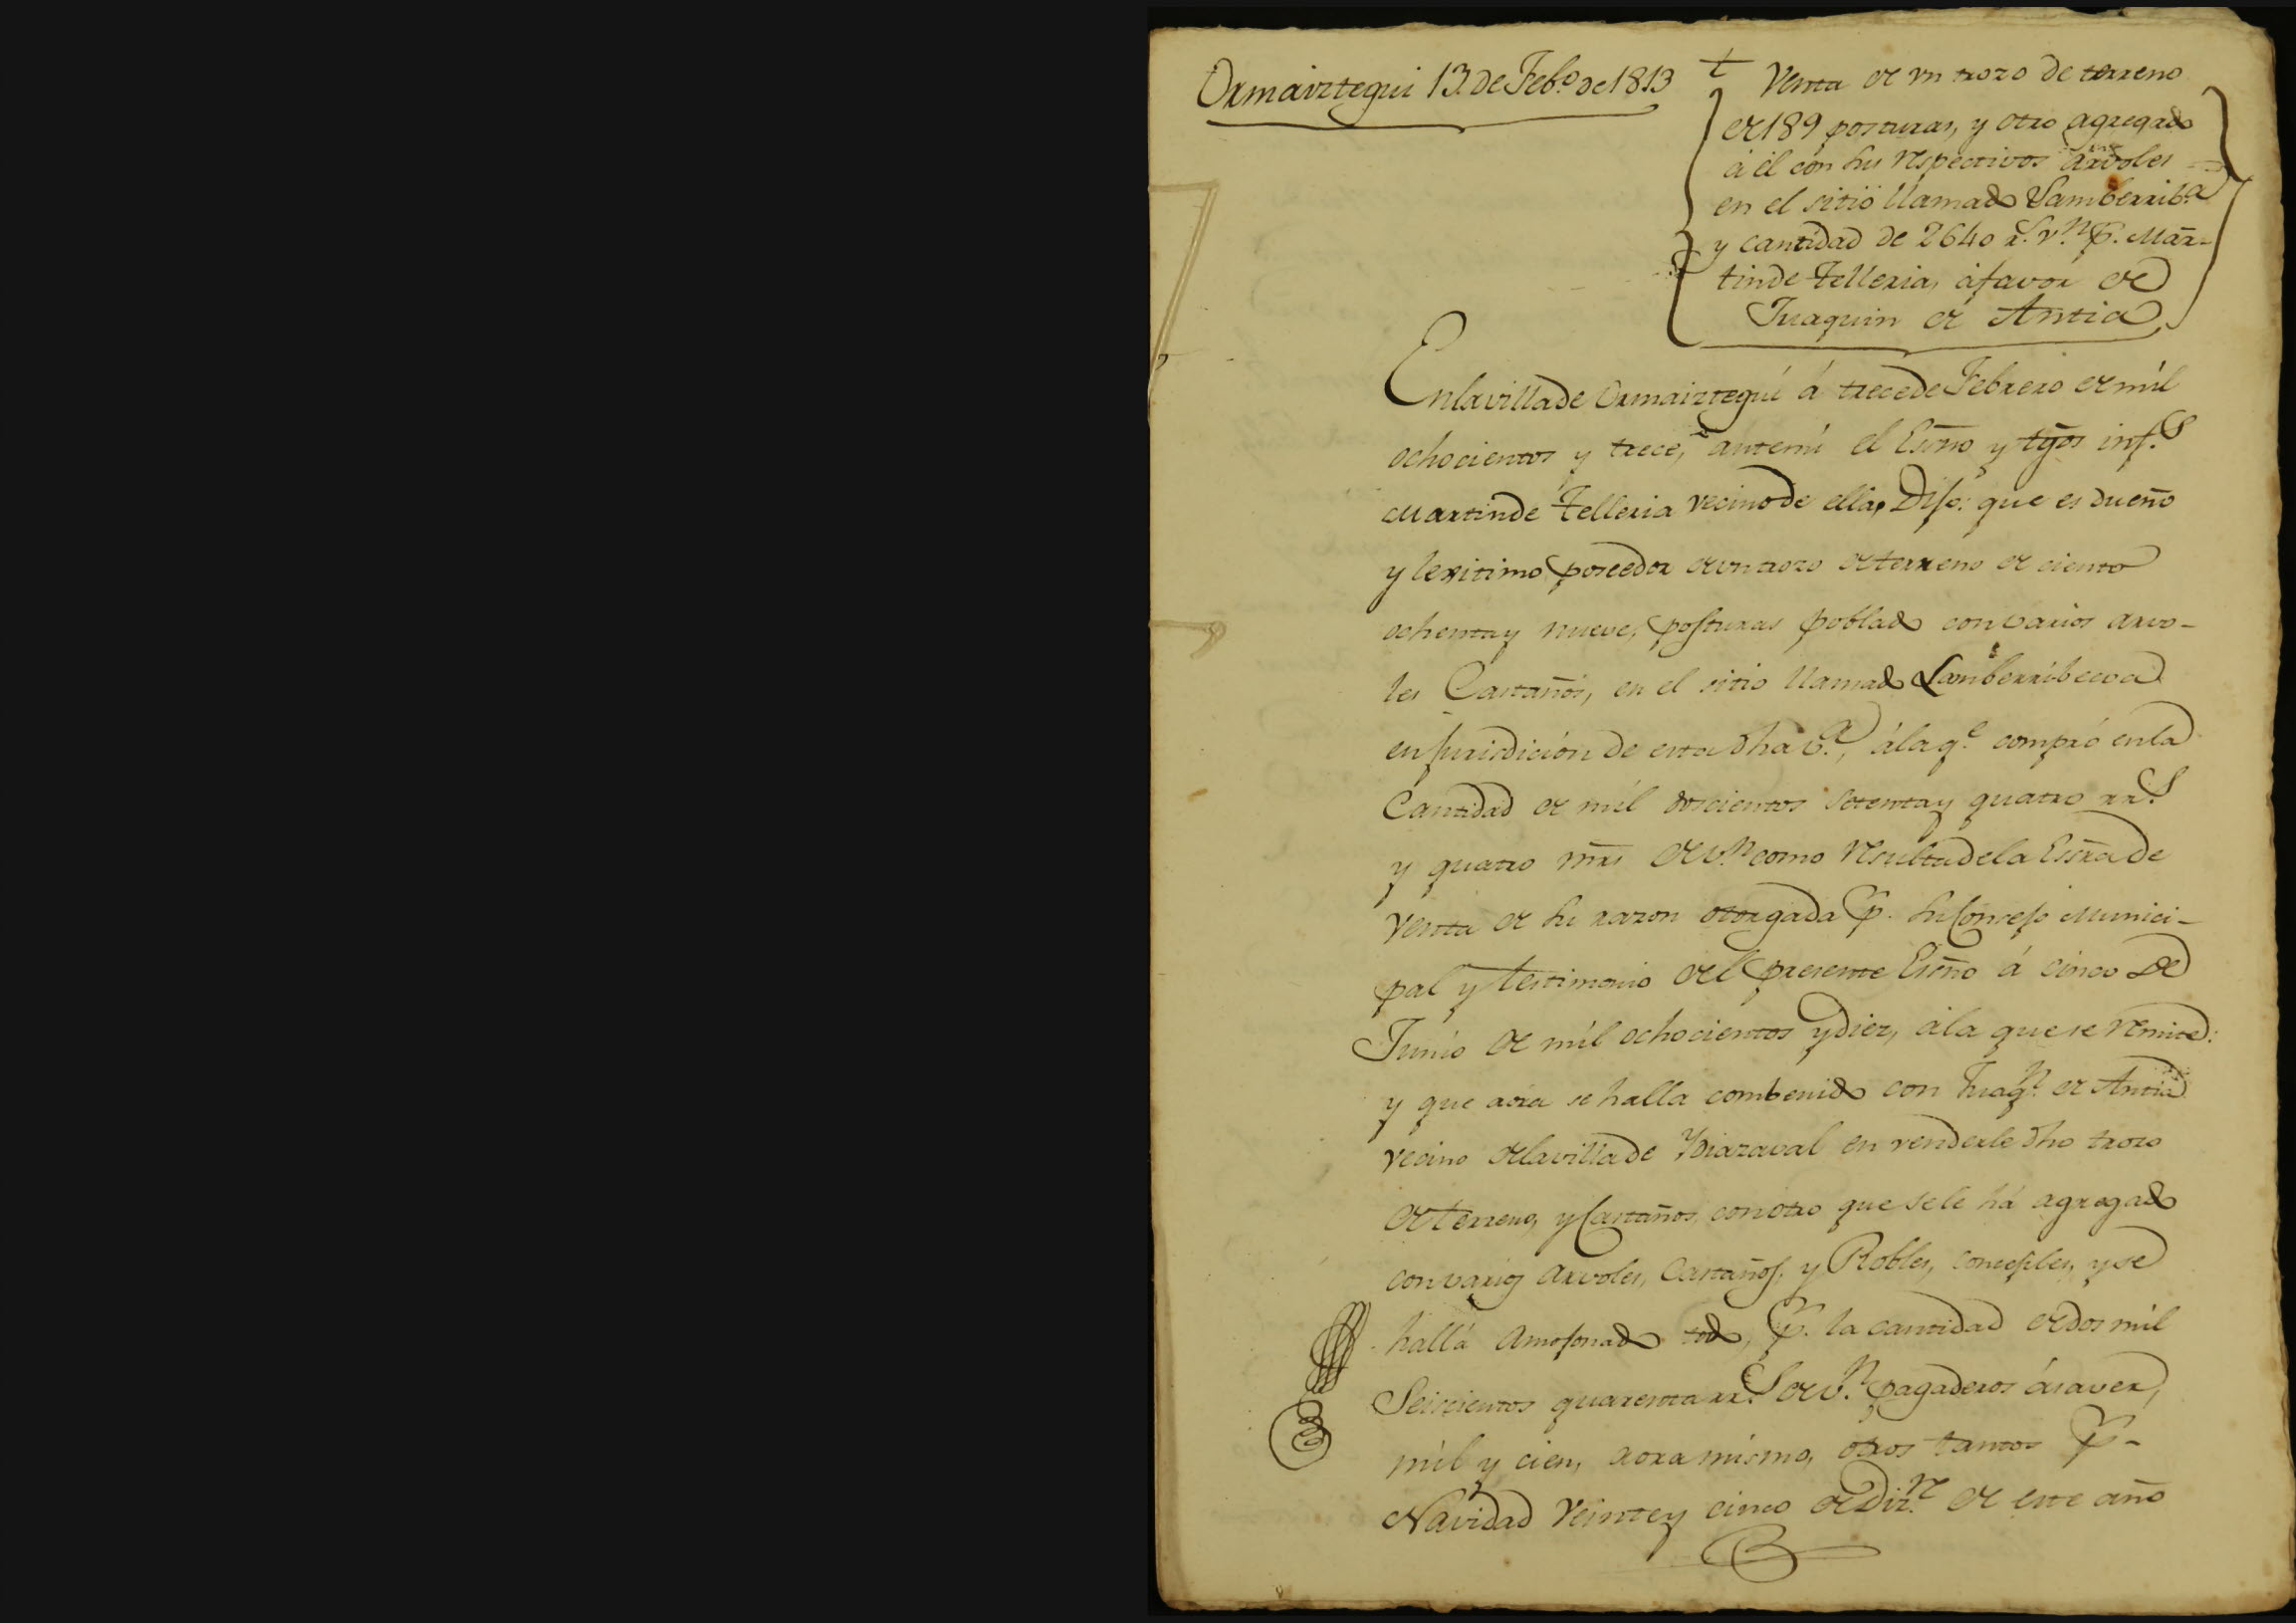 Ormaiztegui 13. de Feb.o de 1813
t
Venta de vn trozo de terreno
de 189 posturas, y otro agregado
á él con su respectivos arvoles
en el sitio llamado Lamberrib.a
y cantidad de 2640 r.s v.n p.r Mar-
tin de Telleria, á favor de
Juaquin de Antia,
En la villa de Ormaiztegui á trece de Febrero de mil
ochocientos y trece, ante mi el Esño y tgos inf.s
Martin de Telleria vecino de ella, Dijo: que es dueño
y lexitimo poseedor de vn trozo de terreno de ciento
ochenta y nueve, posturas poblado con varios arvo-
les Castaños, en el sitio llamado Lamberribecoa
en jurisdicion de esta dha v.a, á la q.e compró en la
Cantidad de mil doscientos setenta y quatro rr.s
y quatro mrs de v.n como resulta de la Essra de
Venta de su razon otorgada p.r su Concejo Munici-
pal y testimonio del presente Esño á cinco de
Junio de mil ochocientos y diez, á la que se remite:
y que aora se halla combenido con Juaq.n de Antia
vecino de la villa de Ydiazaval en venderle dho trozo
de terreno, y Castaños, con otro que se le há agregado
con varios arvoles, Castaños, y Robles, concejiles, y se
halla amojonado todo, p.r la cantidad de dos mil
Seiscientos quarenta rr.s de v.n pagaderos á saver,
mil y cien, aora mismo, otros tantos p.r
Navidad Veinte y cinco de Diz.re de este año